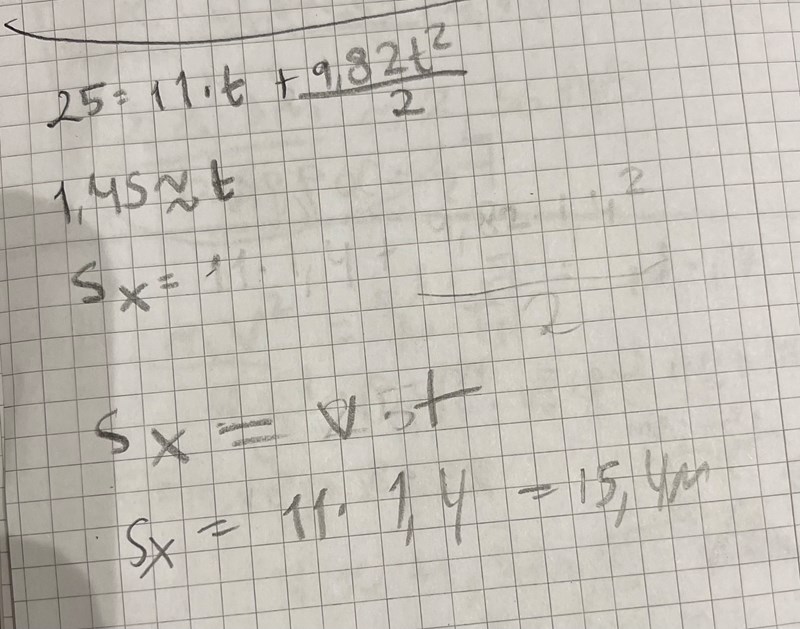 25 = 11·t + 9,82t²/2
1,45 ≈ t
Sx =
Sx = v·t
Sx = 11·1,4 = 15,4m